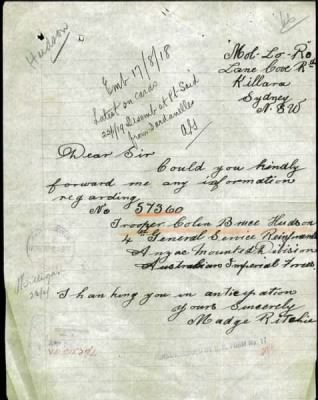 Hudson
Emb 17/8/18
Latest on cards
23/1/19 Disemb at Pt Said
from Dardanelles
Mol-Lo-Ro
Lane Cove Rd
Killara
Sydney
N.S.W
Dear Sir
Could you kindly
forward me any information
regarding
No 57360
Trooper Colin Bruce Hudson
4th General Service Reinforcements
Anzac Mounted Division
Australian Imperial Forces
Thanking you in anticipation
Yours Sincerely
Madge Ritchie